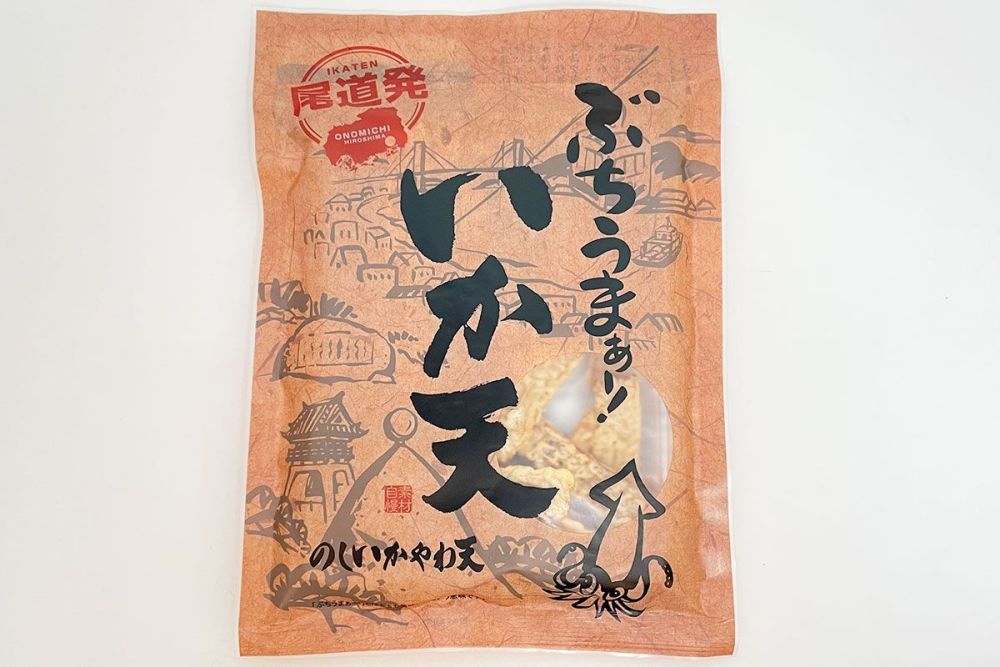 IKATEN
尾道発
ONOMICHI
HIROSHIMA
ぶちうまぁー!
いか天
素材
自慢
のしいかやわ天